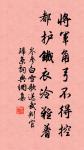 將軍角弓不得控
都護鐵衣冷難著
岑參白雪歌送武判官
歸京詞典網集句